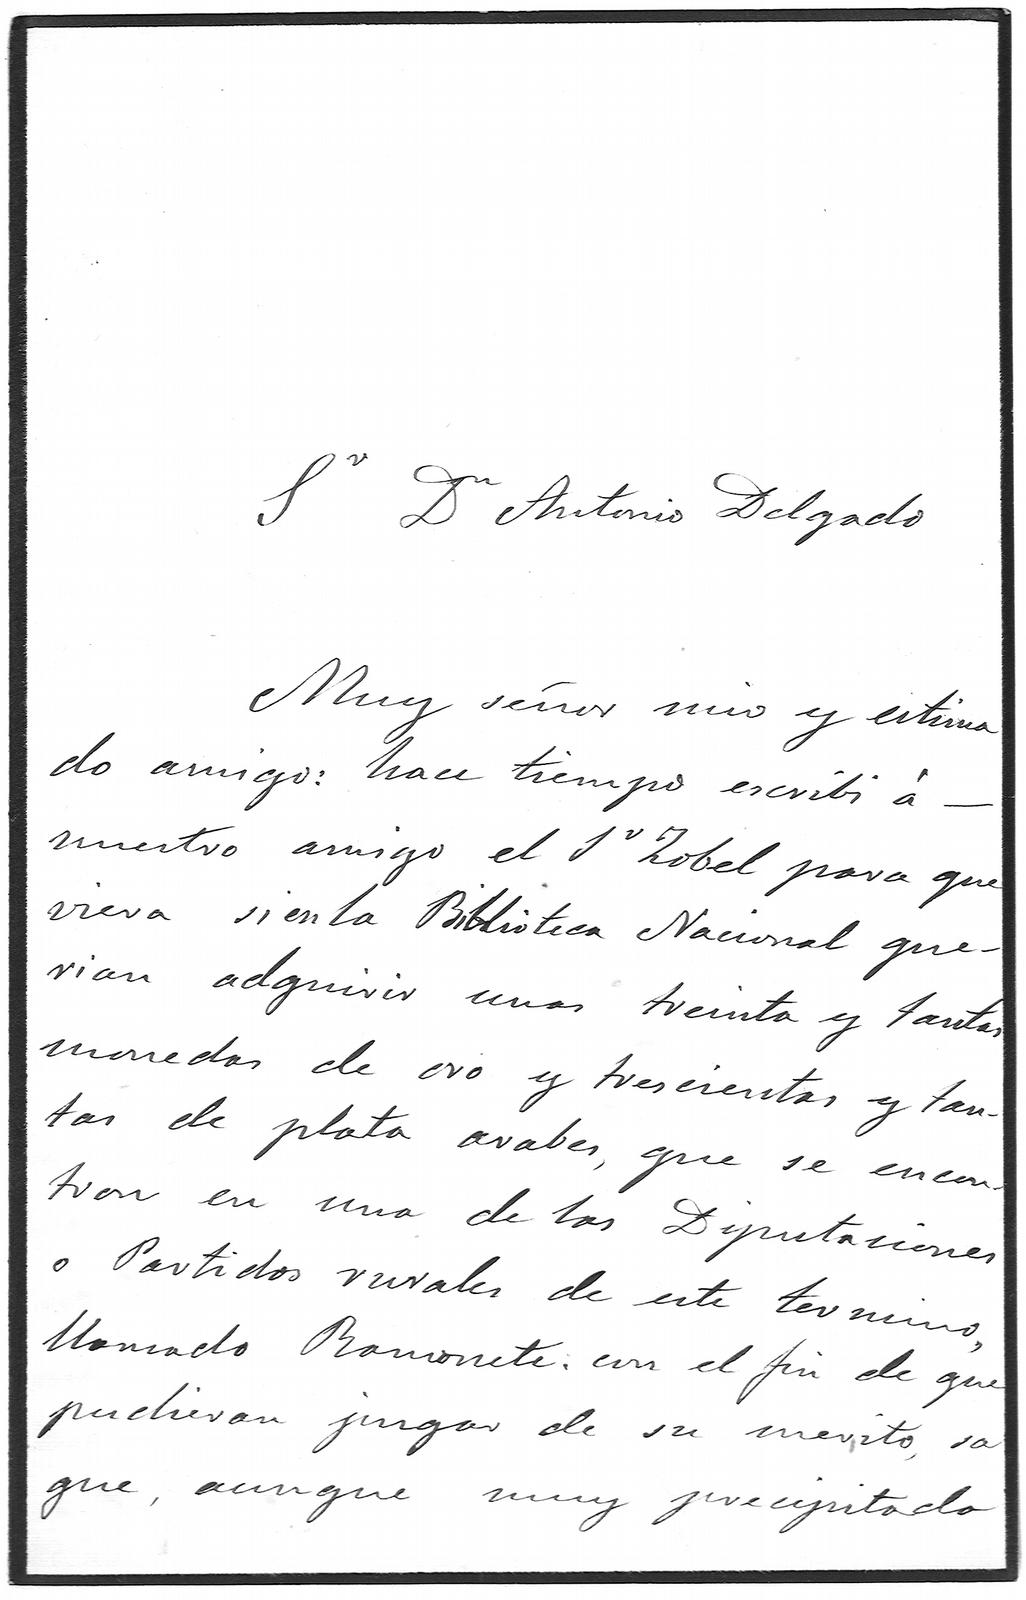 Sr Dn Antonio Delgado
Muy señor mio y estima
do amigo: hace tiempo escribi á —
nuestro amigo el Sr Zobel para que
viera si en la Biblioteca Nacional que-
rian adquirir unas treinta y tantas
monedas de oro y trescientas y tan-
tas de plata arabes, que se encon-
tron en una de las Diputaciones
o Partidos rurales de este termino,
llamado Ramonete: con el fin de que
pudieran jungar de su merito, sa
que, aunque muy precipitado